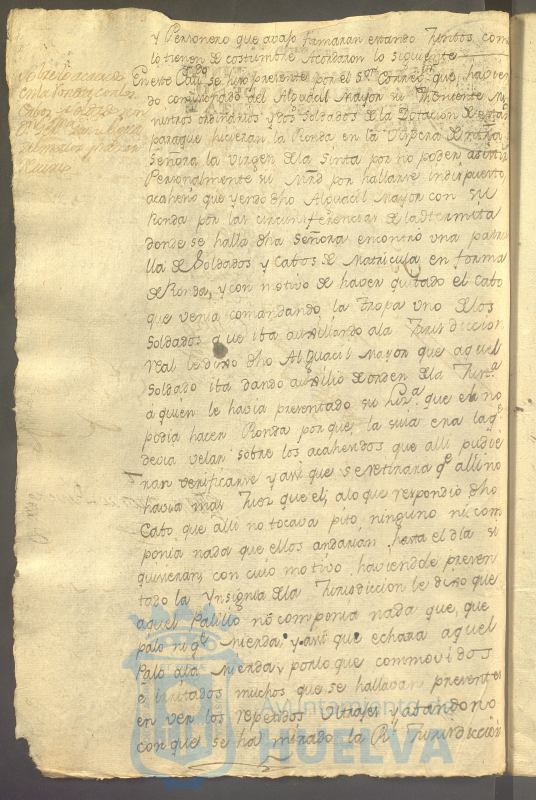 y Personero que avajo firmaran estando Juntos, como
lo tienen de costumbre Acordaron lo siguiente
En este Cavdo se hizo presente por el Sor Correxor que havien
do comisionado al Alguacil Mayor su Theniente Mi
nistros ordinarios y dos Soldados de la Dotacion de esta
para que hicieran la Ronda en la Vispera de nuestra
Señora la Virgen de la Sinta por no poder asistir
Personalmente su Mrd por hallarse indispuesto
acahecio que yendo dho Alguacil Mayor con su
Ronda por las circunsferencias de la Hermita
donde se halla dha Señora encontro una patru
lla de Soldados y Cavos de Matricula en forma
de Ronda, y con motivo de haver quitado el Cavo
que venia comandando la tropa uno de los
Soldados que iba auxiliando a la Jurisdiccion
real le dixo dho Alguacil Mayor que aquel
Soldado iba dando auxilio de orden de la Justa
a quien le havia presentado su Liza que el no
podia hacer Ronda por que la suia era la qe
devia velar sobre los acahecidos que alli pudie
ran verificarse y asi que se retirara qe alli no
havia mas Juez que el, a lo que respondio dho
Cavo que alli no tocava pito ninguno ni com
ponia nada que ellos andarian hasta el dia si
quisieran, con cuio motivo haviendole presen
tado la Ynsignia de la Jurisdiccion le dixo que
aquel Palillo no componia nada que, que
palo ni qe Mierda, y asi que echara aquel
Palo a la Mierda, por lo que commovidos
e irritados muchos que se hallavan presentes
en ver los repetidos Ultrajes y atandono
con que se ha mirado la Rl Jurisdiccion
Ayuntamiento de
HUELVA